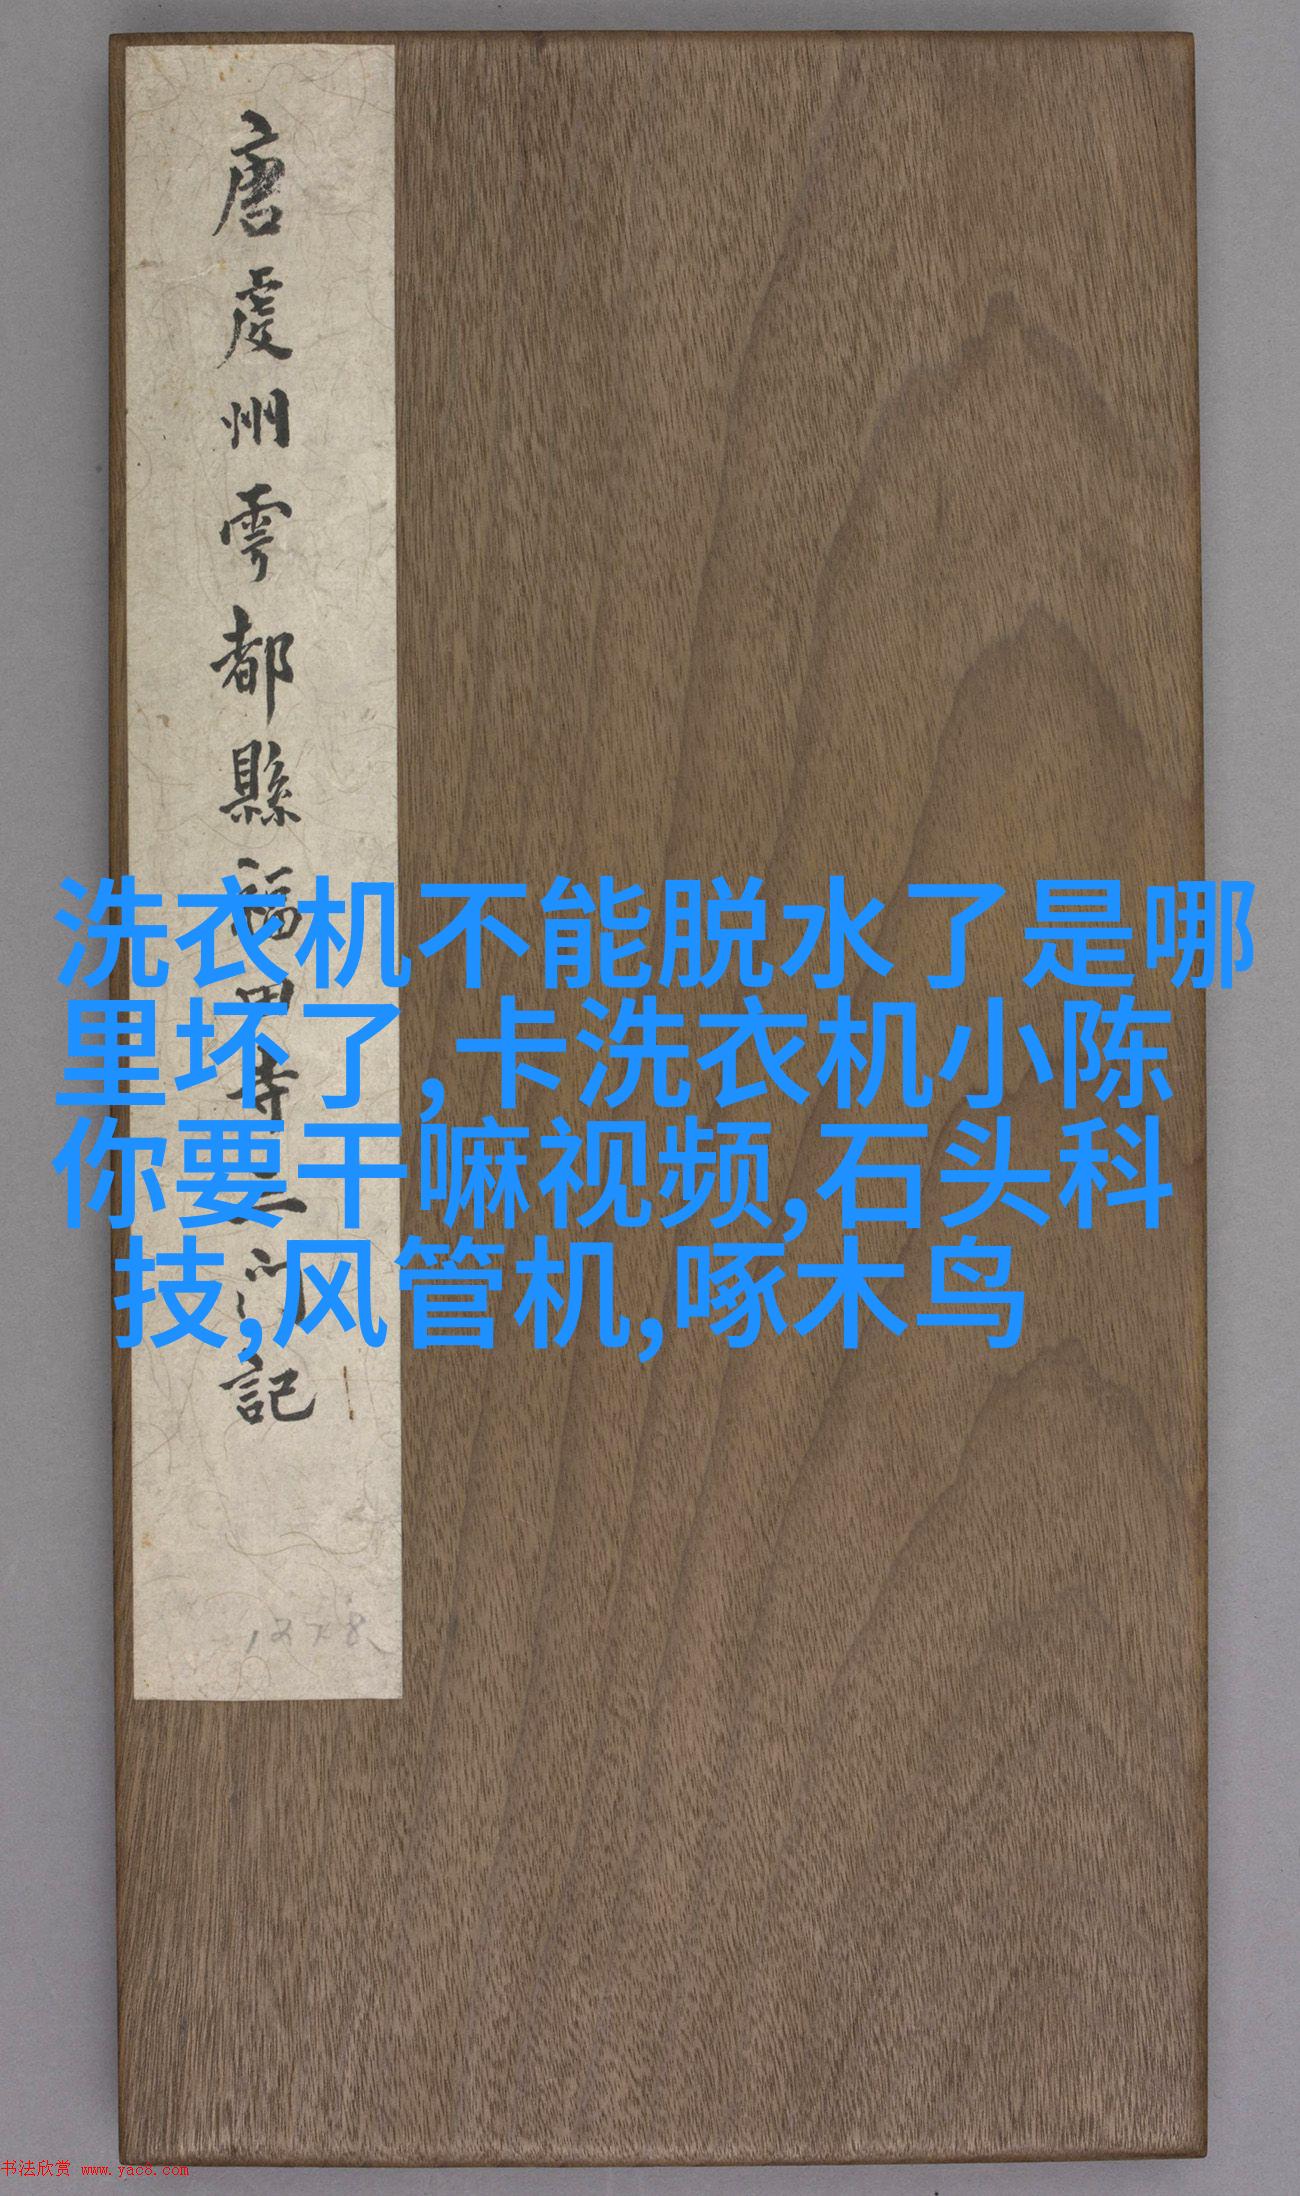 唐虔州雩都縣福田寺三門記
1278
洗衣机不能脱水了是哪
里坏了,卡洗衣机小陈
你要干嘛视频,石头科
技,风管机,啄木鸟
书法欣赏 www.yac8.com